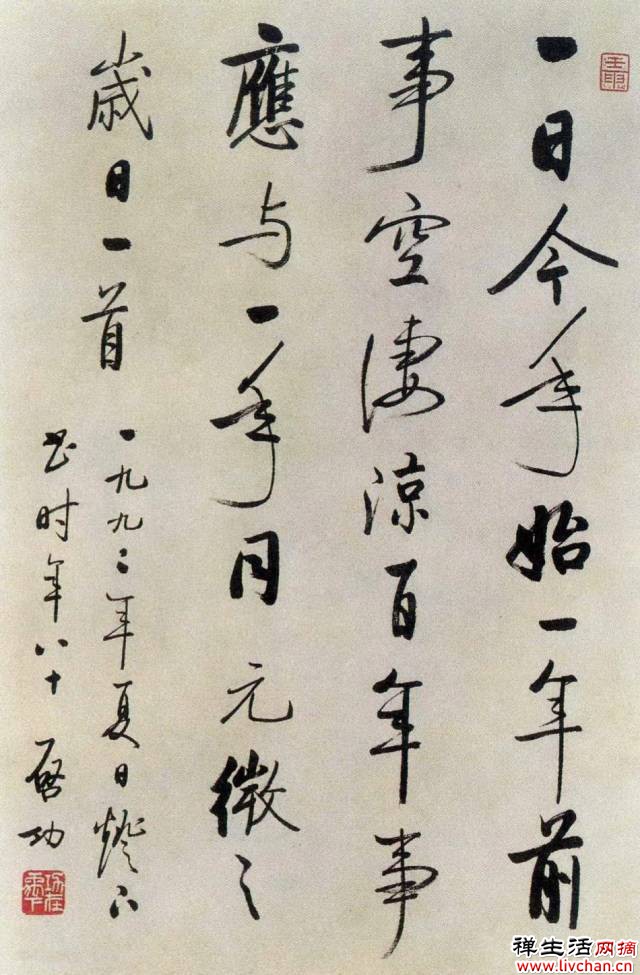 一日今年始一年前
事空淒涼百年事
應与一年同元微之
歲日一首
一九九二年夏日燈下
书时年八十啓功
壬申
禅生活网摘
www.livchan.cn